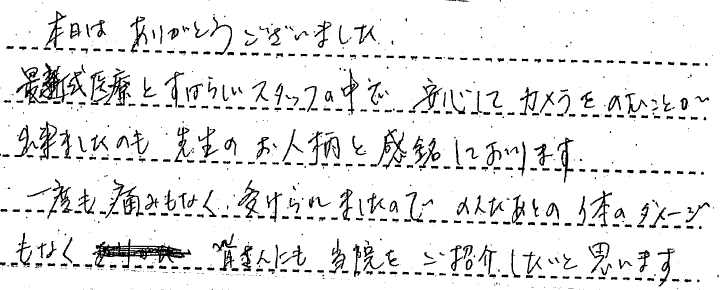 本日は ありがとうございました.
最新式医療とすばらしいスタッフの中で 安心して カメラを のむことが
出来ましたのも 先生の お人柄と感銘しております.
一度も 痛みもなく. 受けられましたので のんだあとの 体の ダメージ
もなく 皆さんにも 当院を ご紹介したいと思います